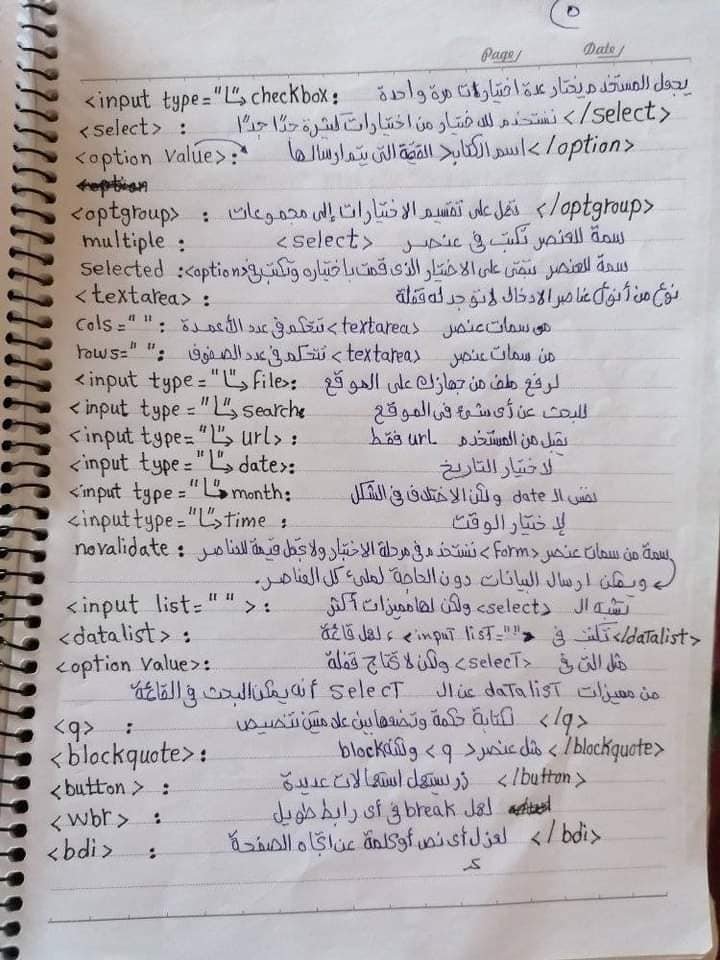 ٥
Page/ Date/
<input type="└"→ checkbox: يجعل المستخدم يختار عدة اختيارات مرة واحدة
<select> : نستخدم للاختيار من اختيارات كثيرة جدًا جدًا </select>
<option Value>: اسم الكتابة القيمة التي يتم ارسالها </option>
<optgroup> : تعمل على تقسيم الاختيارات إلى مجموعات </optgroup>
multiple : سمة للعنصر تكتب في عنصر <select>
Selected : سمة للعنصر تبقى على الاختيار الذى قمت باختياره وتكتب في <option>
<textarea> : نوع من أنواع عناصر الادخال لا توجد له قفلة
cols=" " : من سمات عنصر <textarea> تتحكم في عدد الأعمدة
rows=" " : من سمات عنصر <textarea> تتحكم في عدد الصفوف
<input type="└"→ file>: لرفع ملف من جهازك على الموقع
<input type="└"→ search: للبحث عن أى شئ في الموقع
<input type="└"→ url> : يقبل من المستخدم url فقط
<input type="└"→ date>: لاختيار التاريخ
<input type="└"→ month: نفس الـ date ولكن الاختلاف في الشكل
<input type="└"→ time : لإختيار الوقت
novalidate : سمة من سمات عنصر <form> نستخدم في مرحلة الاختبار ولا تجعل قيمة للعناصر
ويمكن ارسال البيانات دون الحاجة لملئ كل العناصر.
<input list=" "> : تشبه الـ <select> ولكن لها مميزات أكثر
<datalist> : تكتب في <input list=""> ، لعمل قائمة </datalist>
<option Value>: مثل التى في <select> ولكن لا تحتاج قفلة
من مميزات datalist عن الـ select أنه يمكن البحث في القائمة
<q> : لكتابة حكمة وتضعها بين علامتين تنصيص </q>
<blockquote> : مثل عنصر <q> ولكنه block </blockquote>
<button> : زر يستعمل استعمالات عديدة </button>
<wbr> : لعمل break في أى رابط طويل
<bdi> : لعزل أى نص أو كلمة عن اتجاه الصفحة </bdi>